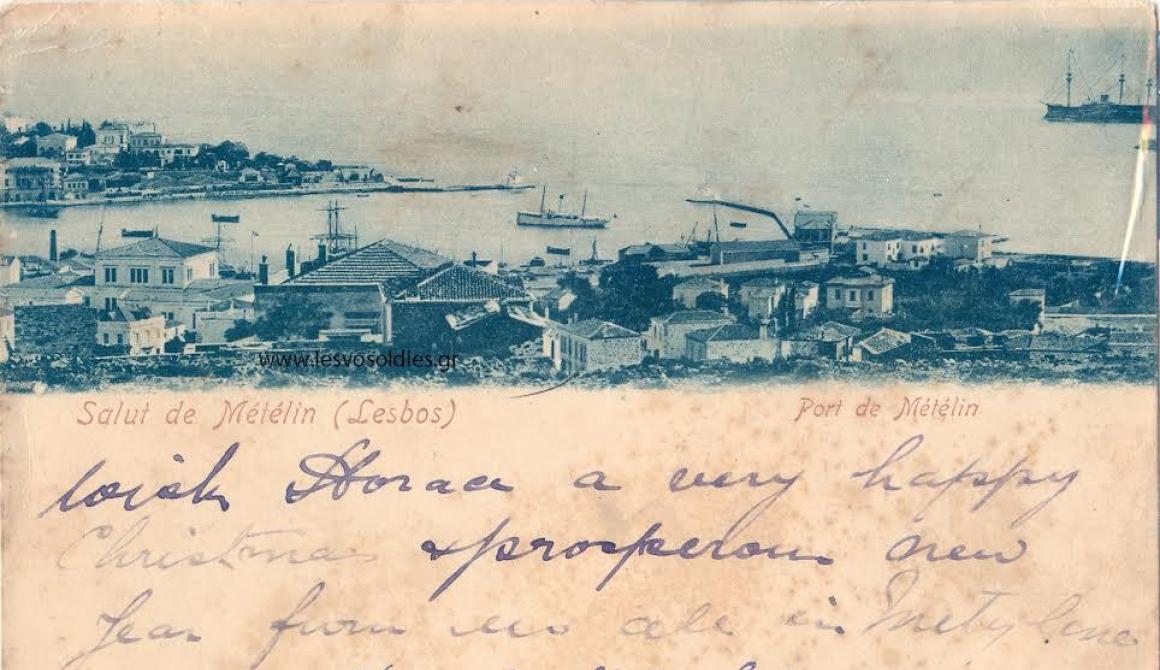 www.lesvosoldies.gr
Salut de Métélin (Lesbos)
Port de Métélin
wish Horace a very happy
Christmas & prosperous new
Year from us all in Metylene